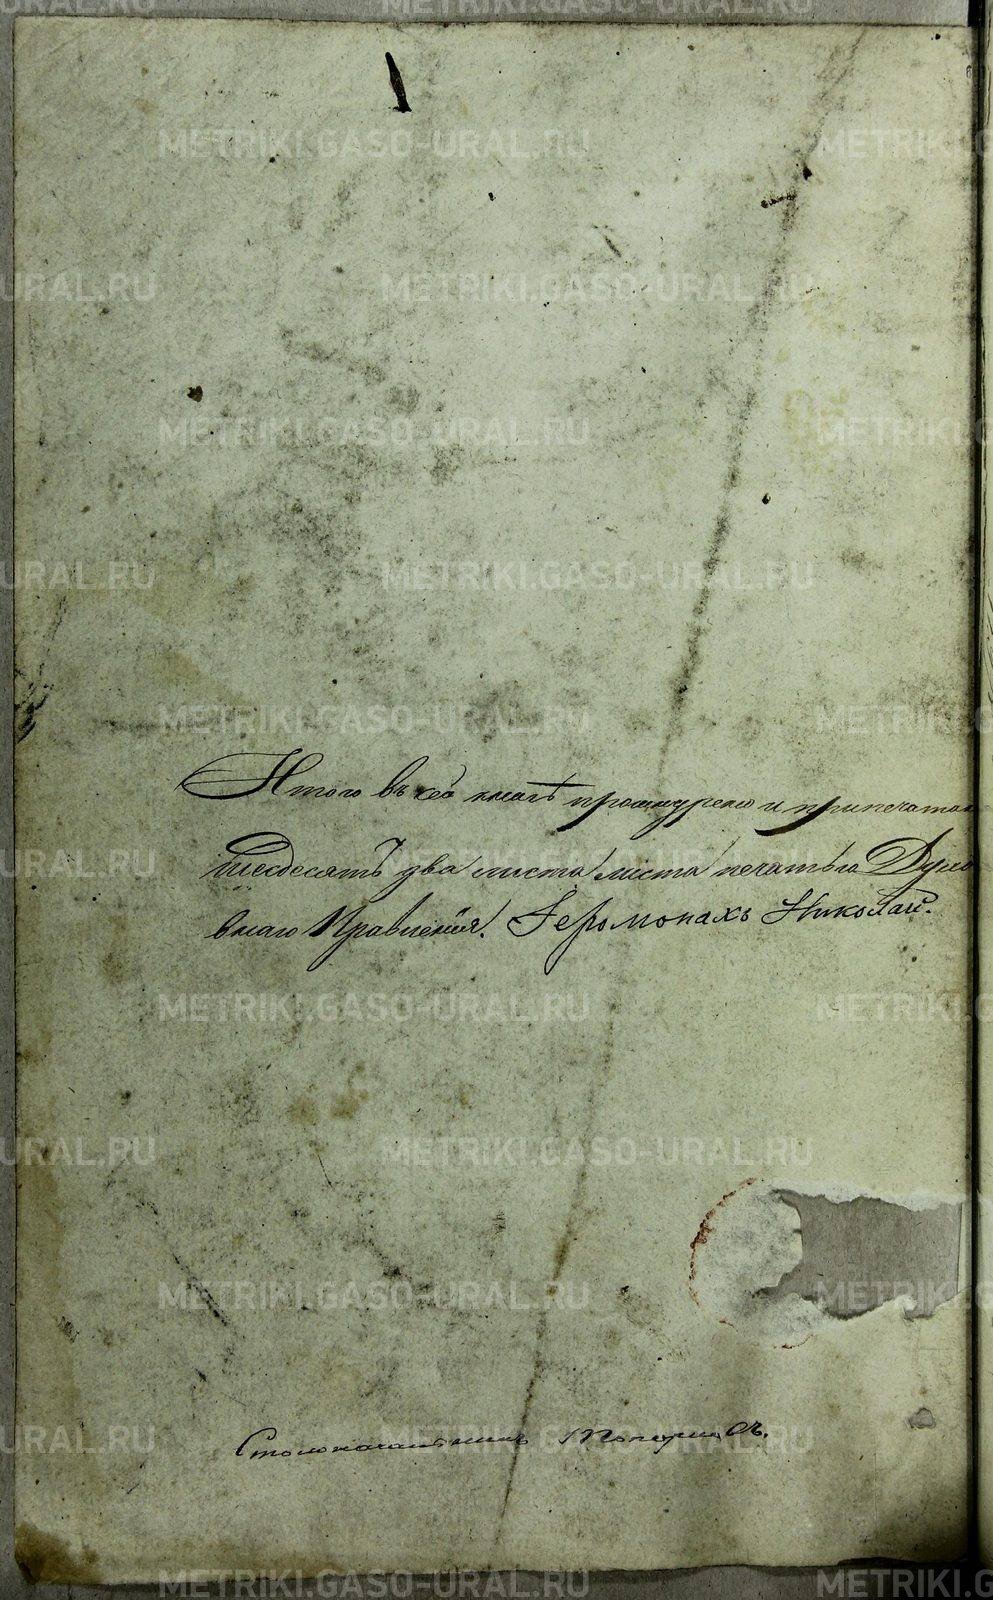 Итого въ сей книгѣ прошнурено и припечатан
шесдесятъ два листа /листа печатью Духо
внаго Правленія. Iеромонахъ Николай.
Столоначальникъ
METRIKI.GASO-URAL.RU